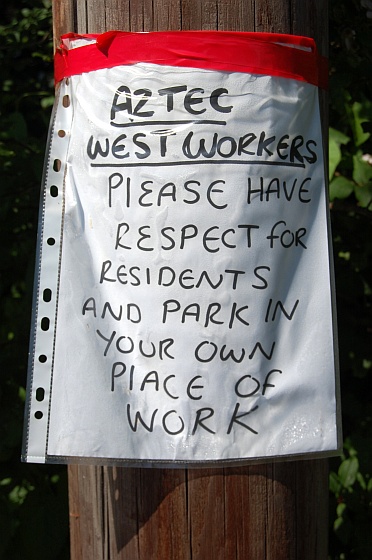 AZTEC
WEST WORKERS
PLEASE HAVE
RESPECT FOR
RESIDENTS
AND PARK IN
YOUR OWN
PLACE OF
WORK